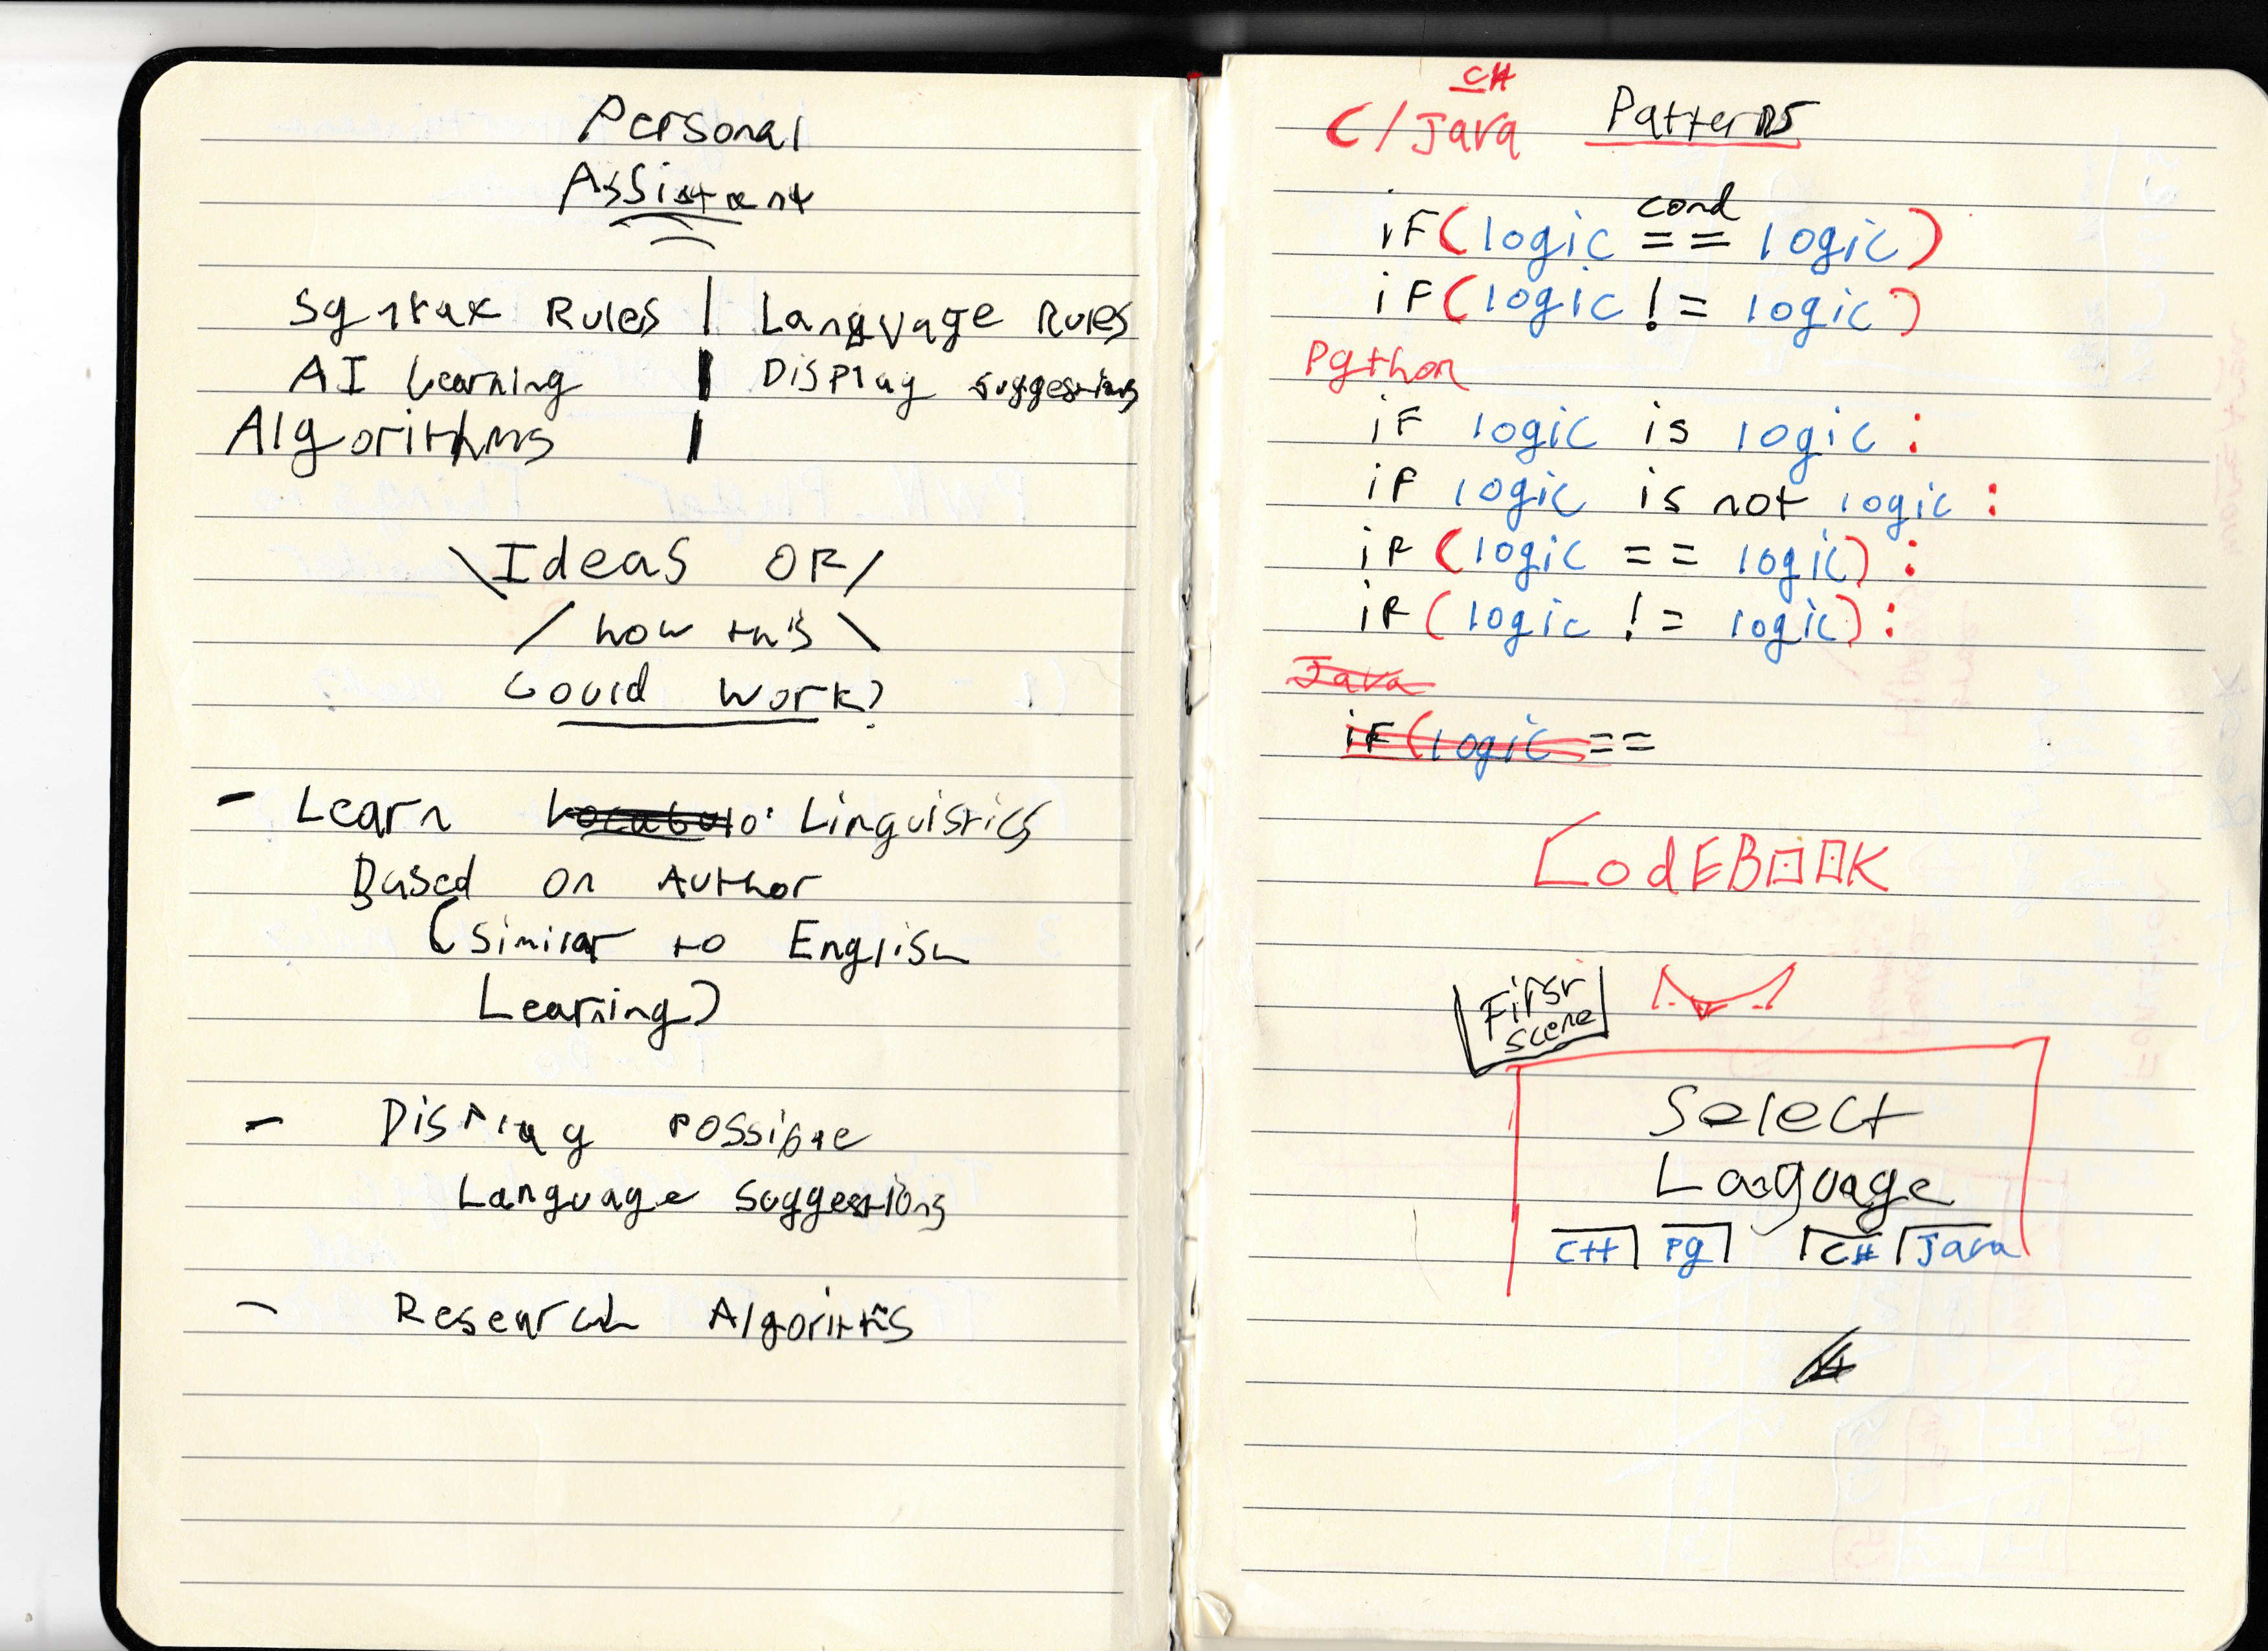 Personal
Assistant
Syntax Rules | Language Rules
AI Learning | Display suggestions
Algorithms |
\Ideas OF/
/how this\
Could work?
- Learn Linguistics
Based on Author
(Similar to English
Learning)
- Display possible
Language suggestions
- Research Algorithms
C#
C/Java Patterns
cond
if(logic == logic)
if(logic != logic)
Python
if logic is logic:
if logic is not logic:
if (logic == logic):
if (logic != logic):
Java
if (logic ==
CodEBOOK
First
scene
Select
Language
C++ Py C# Java